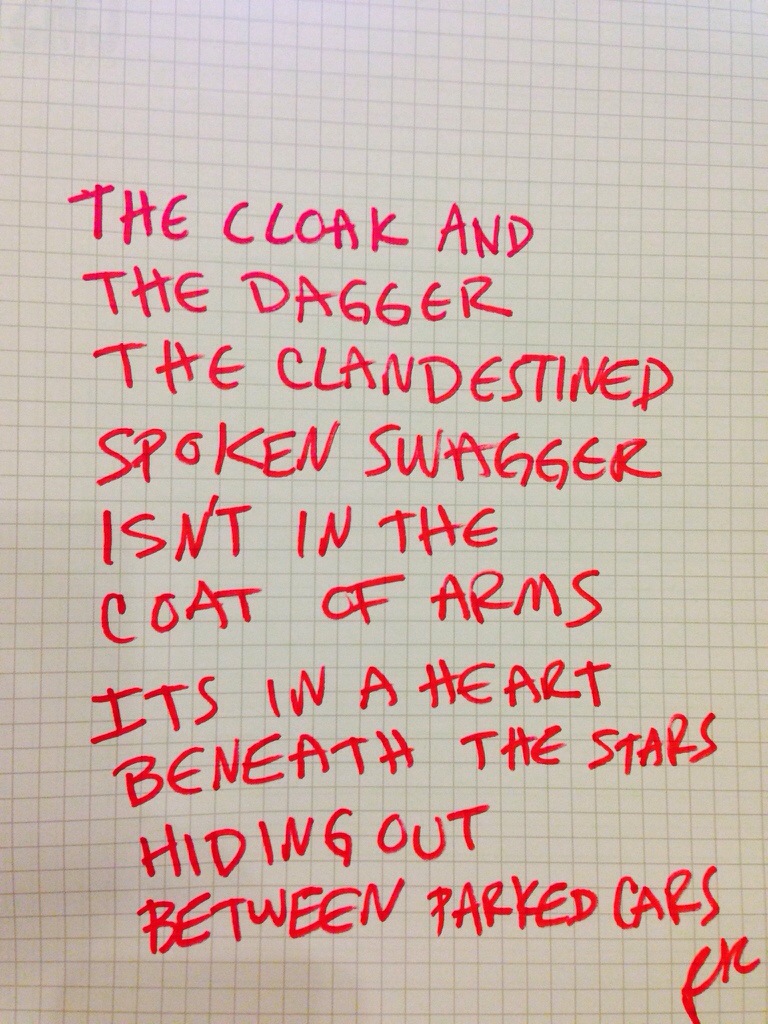 THE CLOAK AND
THE DAGGER
THE CLANDESTINED
SPOKEN SWAGGER
ISN'T IN THE
COAT OF ARMS
ITS IN A HEART
BENEATH THE STARS
HIDING OUT
BETWEEN PARKED CARS